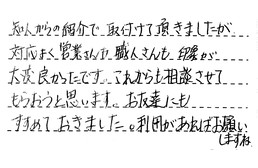 知人からの紹介で取付けて頂きましたが
対応よく営業さんも職人さんも印象が
大変良かったです。これからも相談させて
もらおうと思います。お友達にも
すすめておきました。利用があればお願い
しますね